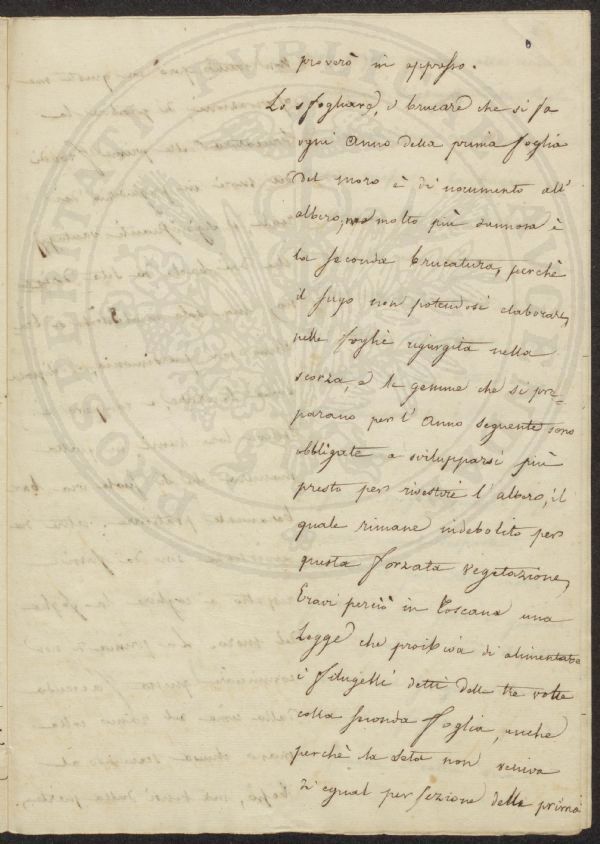 proverò in appresso.
Lo sfogliare, o brucare che si fa
ogni Anno della prima foglia
del moro è di nocumento all'
albero, ma molto più dannosa è
la seconda brucatura, perchè
il sugo non potendosi elaborare
nelle foglie rigurgita nella
scorza, e le gemme che si pre=
parano per l'Anno seguente sono
obbligate a svilupparsi più
presto per rivestire l'albero, il
quale rimane indebolito per
questa forzata vegetazione,
Eravi perciò in Toscana una
Legge che proibiva di alimentare
i filugelli detti delle tre volte
colla seconda foglia, anche
perchè la seta non veniva
di egual perfezione della prima